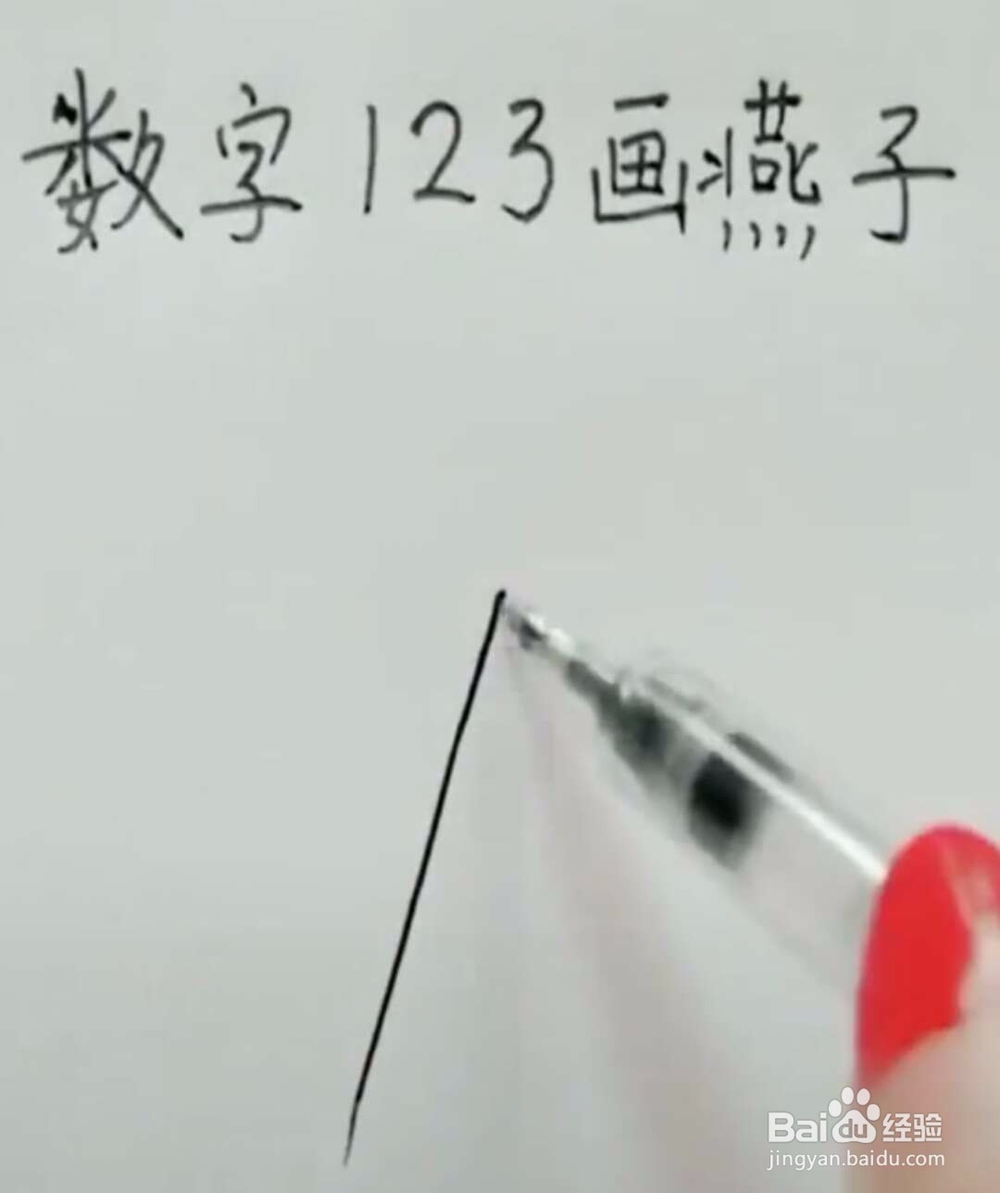 数字123画燕子
Baidu经验
jingyan.baidu.com